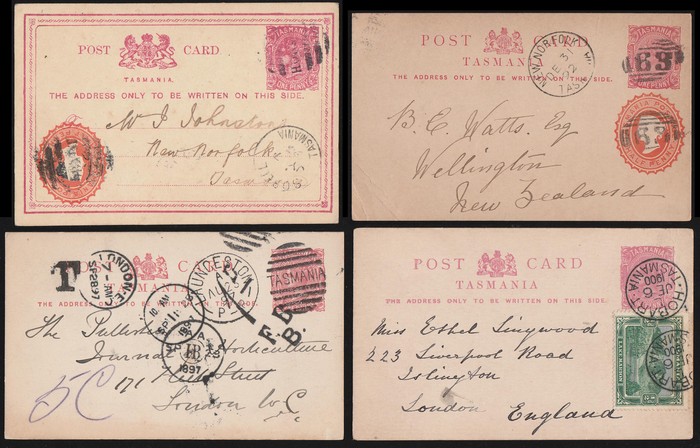 POST CARD
TASMANIA.
THE ADDRESS ONLY TO BE WRITTEN ON THIS SIDE.
TASMANIA
ONE PENNY
Johnstone
New Norfolk
TASMANIA
POST CARD
TASMANIA
THE ADDRESS ONLY TO BE WRITTEN ON THIS SIDE.
TASMANIA
ONE PENNY
NEW NORFOLK
DE 3
02
TAS
63
HALF PENNY
B. C. Watts. Esq
Wellington
New Zealand
POST CARD
T
LONDON E.C
7
SP 28 97
LAUNCESTON
TASMANIA
F.B.
THE ADDRESS ONLY TO BE WRITTEN
The
Journal of Horticulture
171 Fleet Street
London W.C
5C
1897
POST CARD
TASMANIA
THE ADDRESS ONLY TO BE WRITTEN ON THIS SIDE.
TASMANIA
HOBART
JE 6
1900
TASMANIA
Miss Ethel Lingwood
223 Liverpool Road
Islington
London England
LAKE MARION